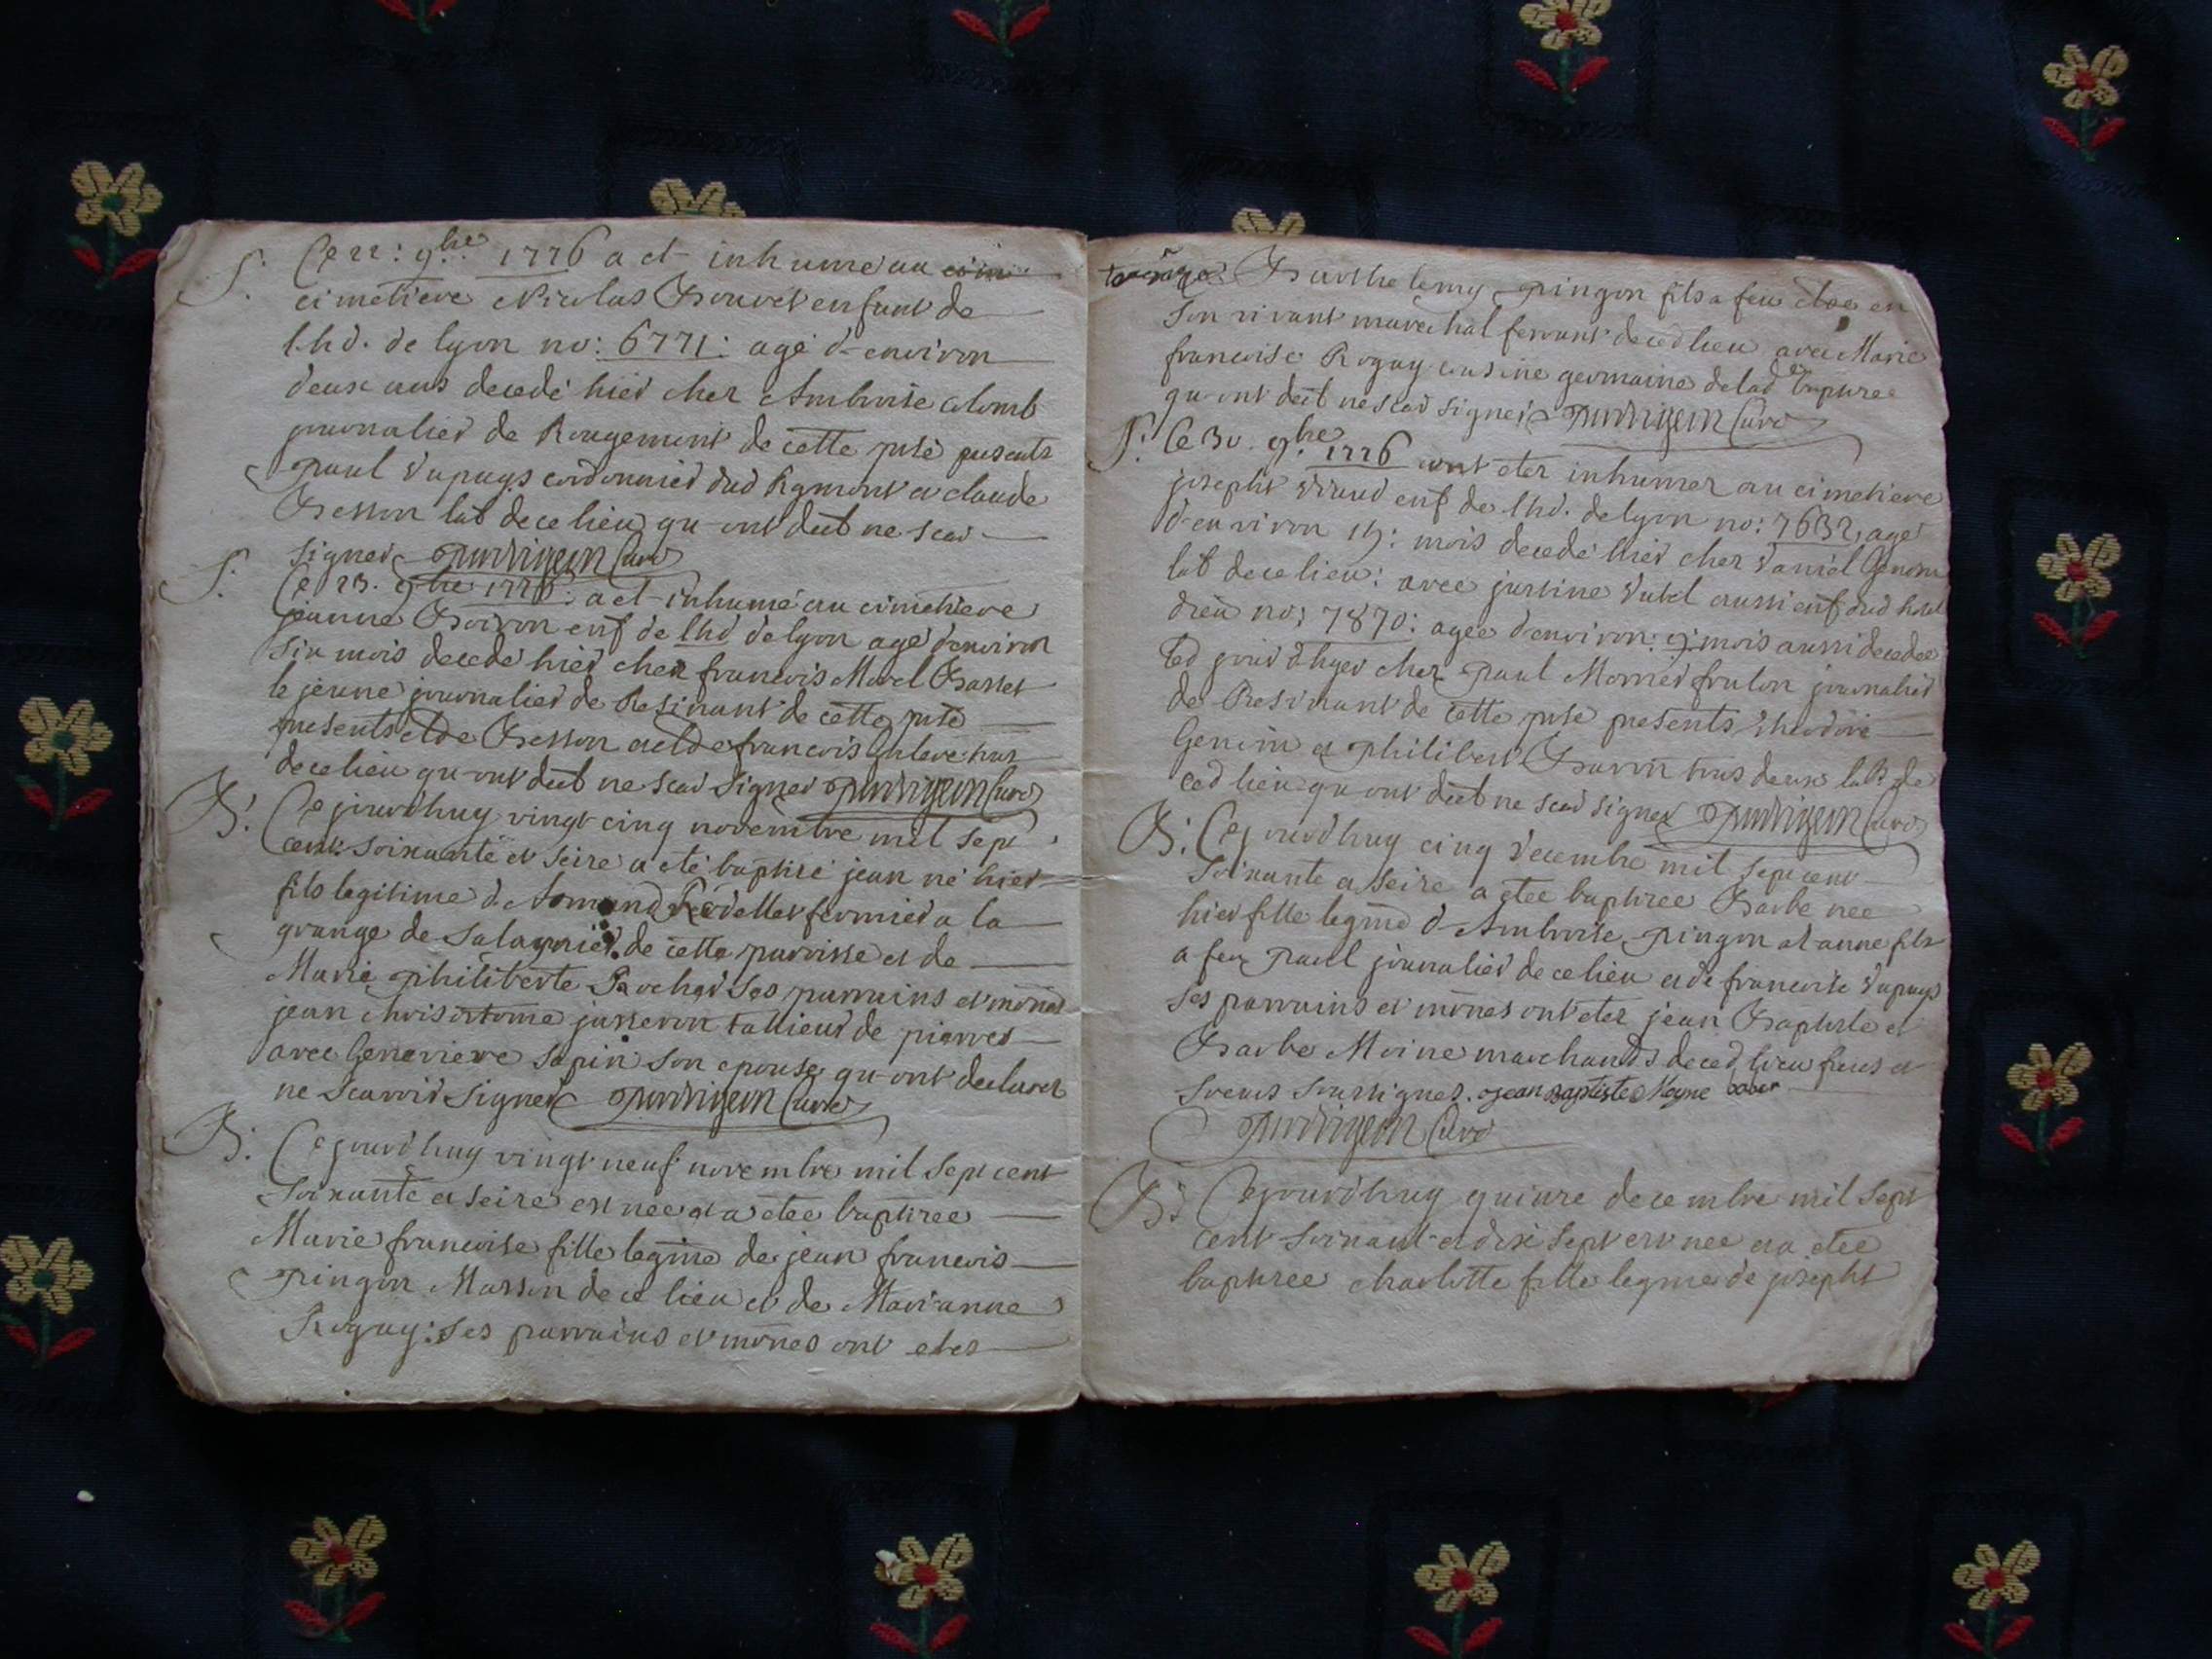 S. Ce 22: 9.bre 1776 a et inhume au
cimetiere Nicolas Bouvet enfant de
l.h d. de lyon no: 6771: agé d'environ
deux ans decedé hier cher Ambroise colomb
journalier de Rougemont de cette psse presents
paul Dupuys cordonnier dud Rgmont et claude
Besson lab de ce lieu qu-ont deet ne scav
signer curé
S. Ce 23. 9bre 1776: a et inhumé au cimetiere
jeanne Boiron enf de lhd de lyon agé d'environ
six mois decede hier cher francois Morel Basset
le jeune journalier de Resinant de cette psse
presents clde Besson et clde francois
de ce lieu qu ont deet ne scav signer curé
B. Ce jourdhuy vingt cinq novembre mil sept
cent soixante et seize a eté baptisé jean né hier
fils legitime d. Armand fermier a la
grange de Salagnier de cette parroisse et de
Marie philiberte Pochod Ses parrains et mñnes
jean chrisostome jusseron tallieur de pierres
avec Genevieve sapin son epouse qu-ont declarer
ne scavoir signer curé
B. Ce jourdhuy vingt neuf novembre mil sept cent
soixante et seize est nee et a etee baptisee
Marie francoise fille legme de jean francois
pingon Masson de ce lieu et de Marianne
Rogay: Ses parrains et mñnes ont etes
Barthelemy pingon fils a feu clde en
Son vivant marechal ferrant de ced lieu avec Marie
francoise Rogay cousine germaine de lad baptisee
qu-ont deet ne scav signer curé
S. Ce 30. 9.bre 1776 ont eter inhumer au cimetiere
josepht enf de lhd. de lyon no: 7632, agé
d'environ mois decedé hier cher Daniel Genom
lab de ce lieu: avec justine Dubel aussi enf dud hotel
dieu no: 7870: agee d'environ: 9: mois aussi decedee
led jour d'hyer cher paul journalier
de Resinant de cette psse presents theodore
Genom et philibert Baron tous deux labs de
ced lieu qu ont deet ne scav signer curé
B. Ce jourdhuy cinq decembre mil sept cent
soixante et seize a etee baptisee Barbe nee
hier fille legme d'Ambroise pingon at anne fils
a feu paul journalier de ce lieu et de francoise Dupuys
Ses parrains et mñnes ont eter jean Baptiste et
Barbe Moine marchands de ced lieu freres et
soeurs soussignes. jean baptiste Moyne
curé
B. Ce jourdhuy quinze decembre mil sept
cent soixant et dix sept est nee et a etee
baptisee charlotte fille legme de josepht